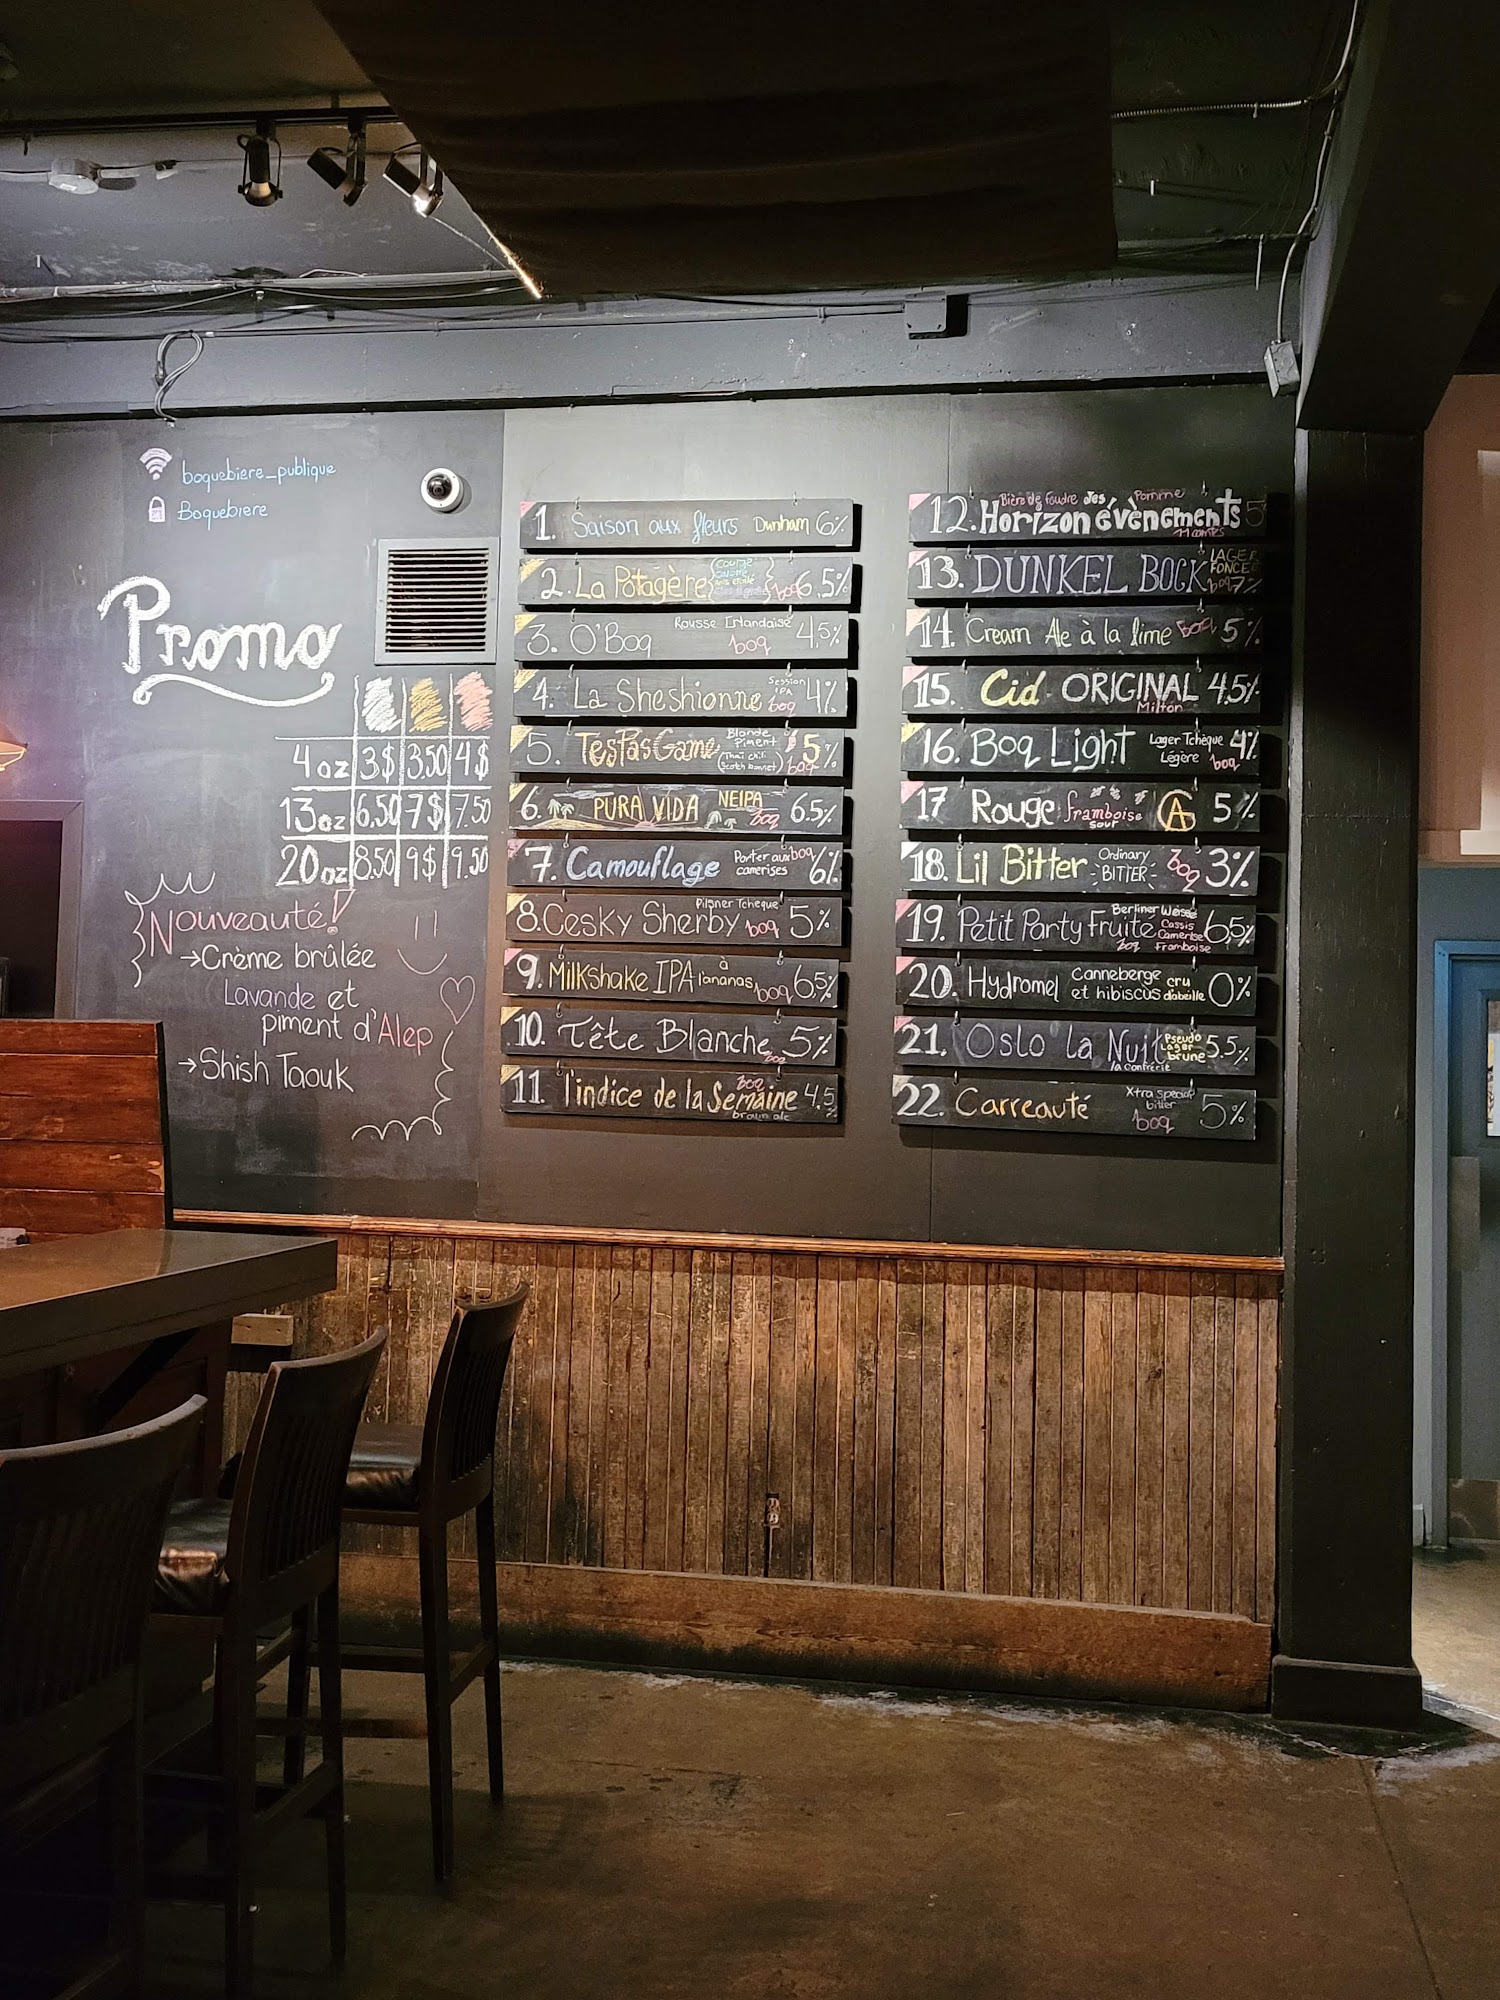 boquebiere_publique
Boquebiere
Promo
4oz 3$ 3.50 4$
13oz 6.50 7$ 7.50
20oz 8.50 9$ 9.50
Nouveauté!
→Crème brûlée
Lavande et
piment d'Alep
→Shish Taouk
1. Saison aux fleurs Dunham 6%
2. La Potagère boq 6.5%
3. O'Boq Rousse Irlandaise boq 4,5%
4. La Sheshionne Session IPA boq 4%
5. TesPasGame Blonde Piment (Thai chili boq 5%
6. PURA VIDA NEIPA boq 6.5%
7. Camouflage Porter aux camerises boq 6%
8. Cesky Sherby Pilsner Tcheque boq 5%
9. Milkshake IPA à l'ananas boq 6,5%
10. Tête Blanche boq 5%
11. l'indice de la Semaine boq brown ale 4.5
12. Bière de foudre Pomme Horizon des évènements 5
13. DUNKEL BOCK LAGER FONCEE boq 7%
14. Cream Ale à la lime boq 5%
15. Cid ORIGINAL Milton 4.5%
16. Boq Light Lager Tchèque Légère boq 4%
17 Rouge framboise sour A 5%
18. Lil Bitter Ordinary BITTER boq 3%
19. Petit Party Fruité Berliner Weisse Cassis Camerise Framboise boq 6,5%
20. Hydromel Canneberge et hibiscus cru d'abeille 0%
21. Oslo la Nuit la confrérie Pseudo Lager brune 5.5%
22. Carreauté Xtra special bitter boq 5%